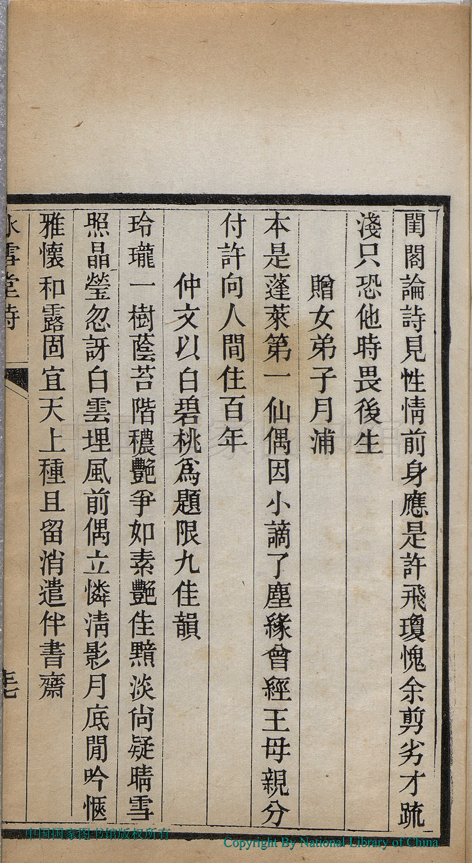 閨閣論詩見性情前身應是許飛瓊愧余剪劣才疏
淺只恐他時畏後生
贈女弟子月浦
本是蓬萊第一仙偶因小謫了塵緣曾經王母親分
付許向人間住百年
仲文以白碧桃為題限九佳韻
玲瓏一樹蔭苔階穠艷爭如素艷佳黯淡尙疑晴雪
照晶瑩忽訝白雲埋風前偶立憐清影月底閒吟愜
雅懷和露固宜天上種且留消遣伴書齋
冰雪堂詩
中国国家图书馆版权所有
Copyright By National Library of China